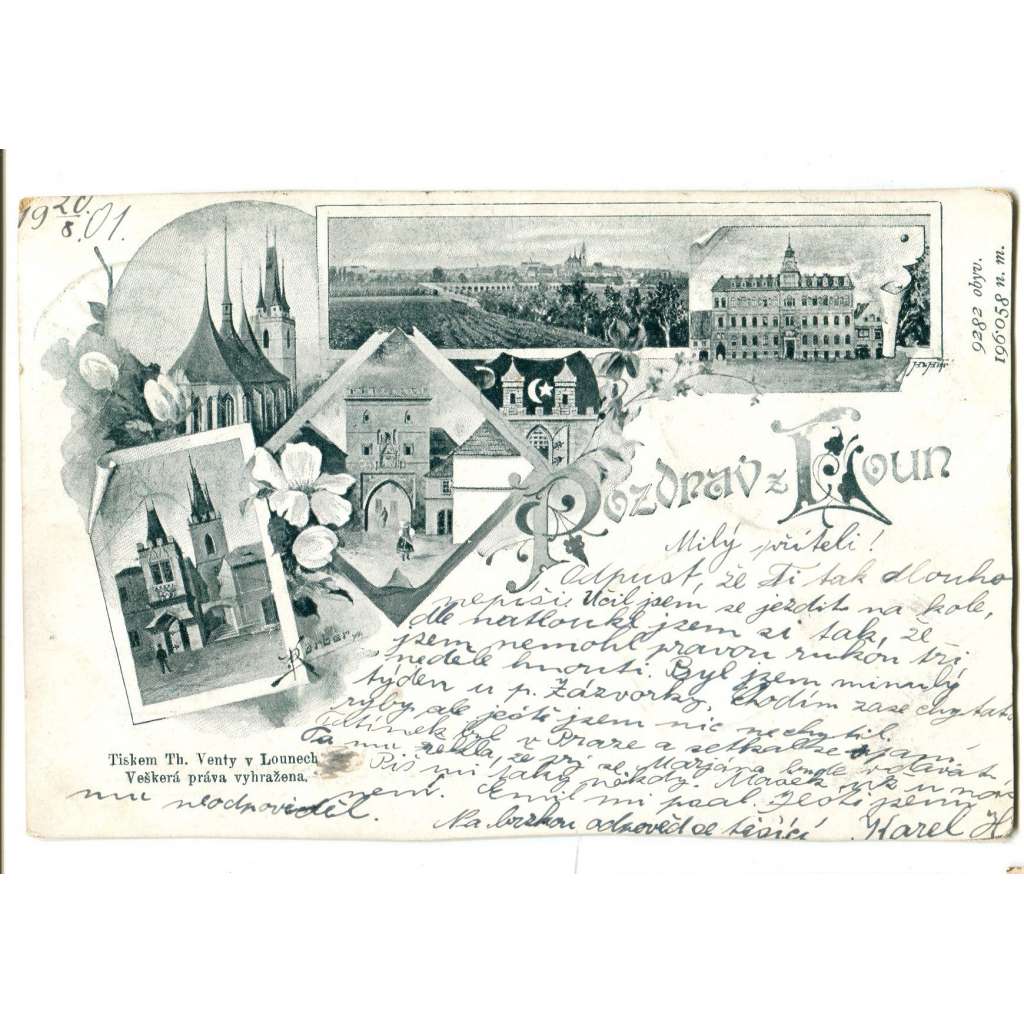 19 20/8 01.
9282 obyv.
196·058 n. m.
Pozdrav z Loun
Milý příteli!
Odpust, že Ti tak dlouho
nepíši. Učil jsem se jezdit na kole,
dle natloukl jsem si tak, že
jsem nemohl pravou rukou tři
neděle hnouti. Byl jsem minulý
týden u p. Zázvorky, chodím zase chytat
ryby, ale ještě jsem nic nechytil.
byl v Praze a setkal se s
Ta mu řekla, že prý se Marjána bude vdávat
Piš mi taky někdy. Mařek u nás
není. Emil mi psal. Ještě jsem
mu neodpověděl.
Na brzkou odpověď se těšící Karel H
Tiskem Th. Venty v Lounech
Veškerá práva vyhražena.